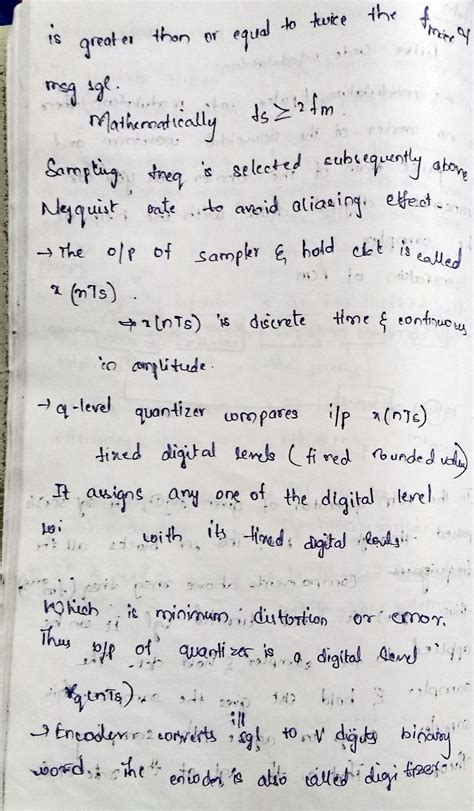 is greater than or equal to twice the fmax of
msg sgl.
Mathematically fs ≥ 2fm.
Sampling freq is selected subsequently above
Neyquist rate to avoid aliasing effect.
→ The o/p of sampler & hold ckt is called
x(nTs).
⇒ x(nTs) is discrete time & continuous
in amplitude.
→ q-level quantizer compares i/p x(nTs)
fixed digital levels (fixed rounded value)
It assigns any one of the digital level
wi with its fixed digital levels.
Which is minimum distortion or error.
Thus o/p of quantizer is a digital level
xq(nTs).
→ Encoder converts i/p sgl to v digits binary
word. The encoder is also called digitizer.